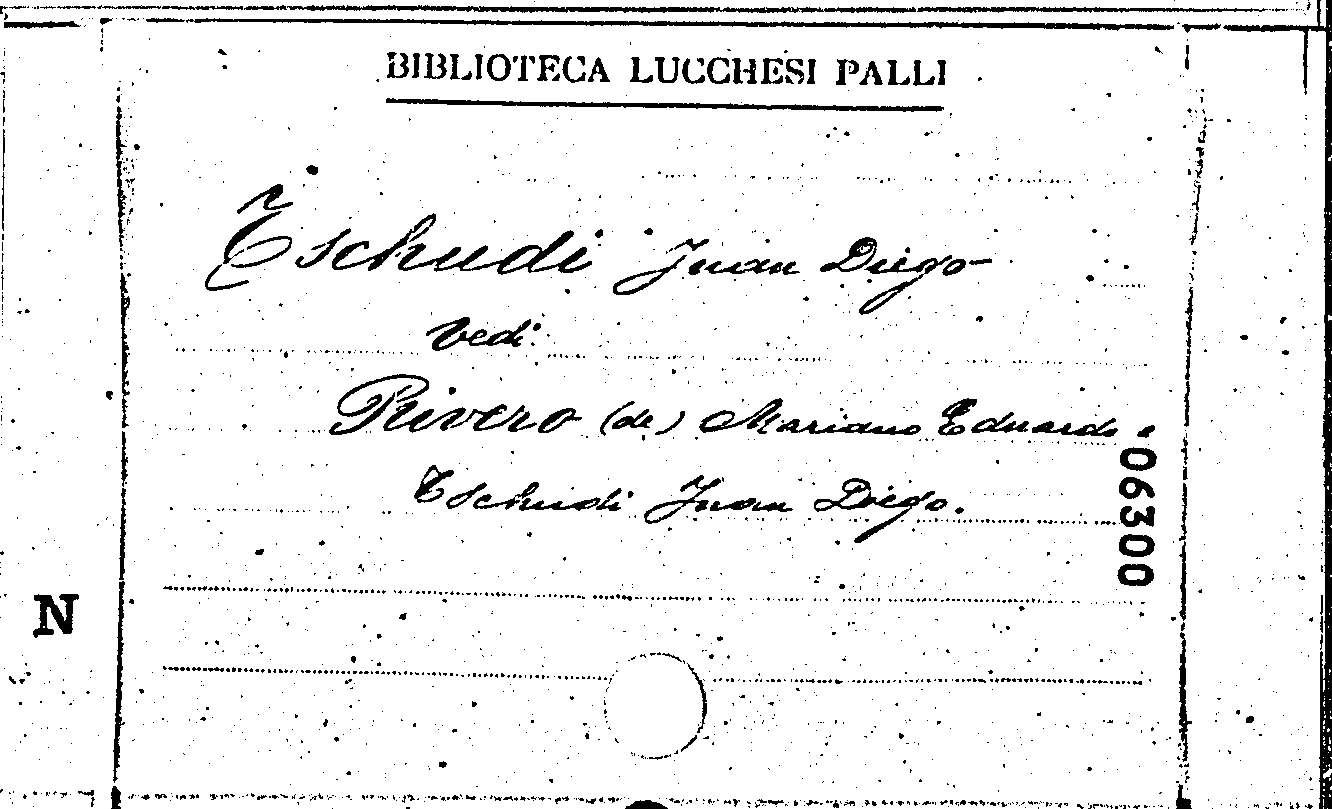 BIBLIOTECA LUCCHESI PALLI
Tschudi Juan Diego
Vedi:
Rivero (de) Mariano Eduardo e
Tschudi Juan Diego.
06300
N